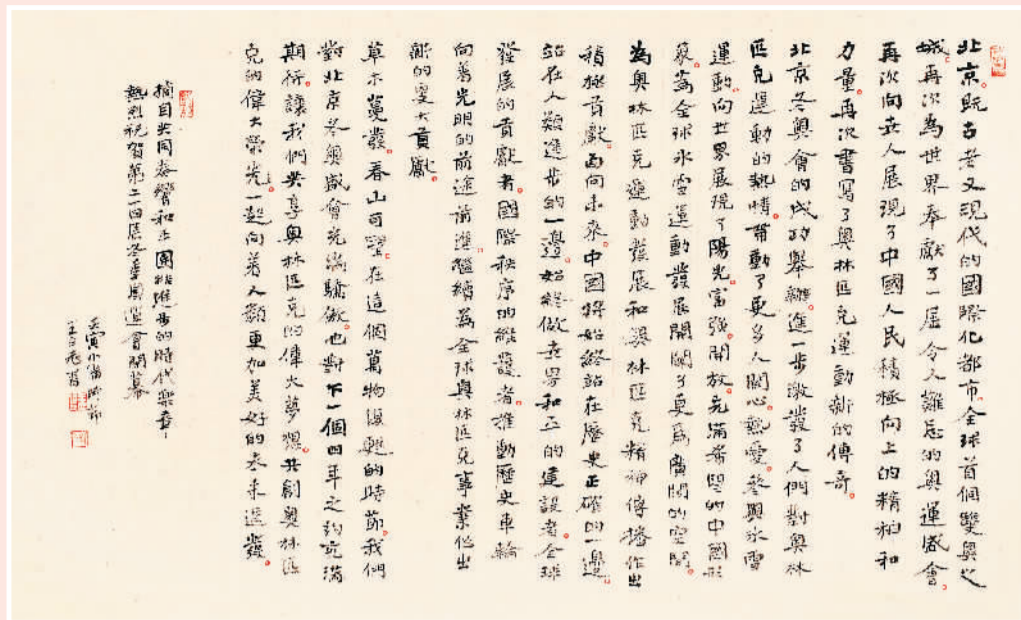 北京。既古老又現代的國際化都市。全球首個雙奧之
城。再次為世界奉獻了一屆令人難忘的奧運盛會。
再次向世人展現了中國人民積極向上的精神和
力量。再次書寫了奧林匹克運動新的傳奇。
北京冬奧會的成功舉辦。進一步激發了人們對奧林
匹克運動的熱情。帶動了更多人關心。熱愛。參與冰雪
運動。向世界展現了陽光。富強。開放。充滿希望的中國形
象。為全球冰雪運動發展開闢了更為廣闊的空間。
為奧林匹克運動發展和奧林匹克精神傳播作出
積極貢獻。面向未來。中國將始終站在歷史正確的一邊。
站在人類進步的一邊。始終做世界和平的建設者。全球
發展的貢獻者。國際秩序的維護者。推動歷史車輪
向着光明的前途前進。繼續為全球奧林匹克事業作出
新的更大貢獻。
草木蔓發。春山可望。在這個萬物復甦的時節。我們
對北京冬奧盛會充滿驕傲。也對下一個四年之約充滿
期待。讓我們共享奧林匹克的偉大夢想。共創奧林匹
克的偉大榮光。一起向着人類更加美好的未來進發。
摘自共同奏響和平團結進步的時代樂章
熱烈祝賀第二四屆冬季奧運會閉幕
壬寅小